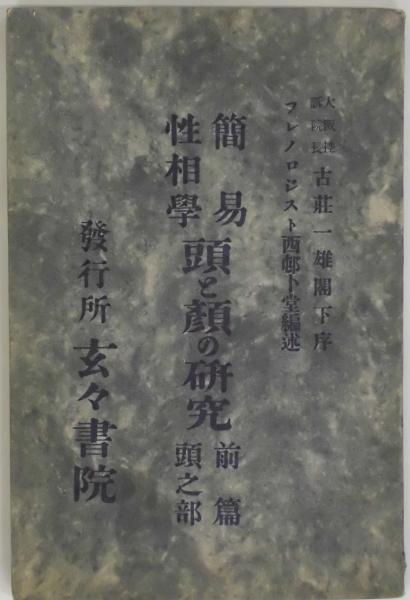 大阪控
訴院長
古荘一雄閣下序
フレノロジスト西邨卜堂編述
簡易
性相學
頭と顏の研究
前篇
頭之部
發行所 玄々書院